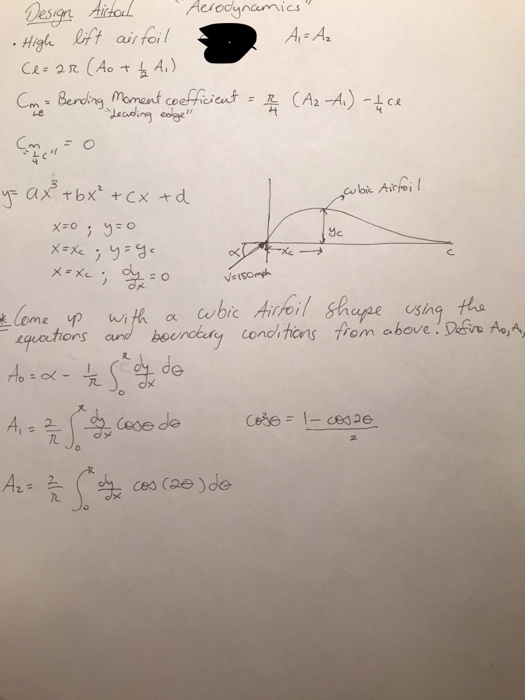 Design Airfoil "Aerodynamics"
• High lift airfoil A₁ = A₂
Cℓ = 2π (A₀ + ½ A₁)
Cm = Bending Moment coefficient = π/4 (A₂ - A₁) - ¼ cℓ
LE "Leading edge"
Cm "¼ c" = 0
y = ax³ + bx² + cx + d
cubic Airfoil
x=0 ; y=0
yc
x=xc ; y=yc
α xc c
x=xc ; dy/dx = 0
V=150mph
* Come up with a cubic Airfoil shape using the
equations and boundary conditions from above. Define A₀, A₁
A₀ = α - 1/π ∫₀^π dy/dx dθ
A₁ = 2/π ∫₀^π dy/dx cosθ dθ cos²θ = 1 - cos2θ / 2
A₂ = 2/π ∫₀^π dy/dx cos (2θ) dθ